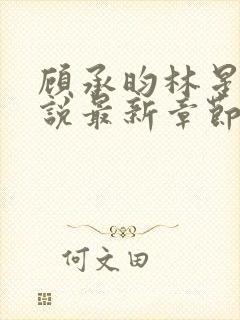 顾承昀林星
說最新章節
何文田